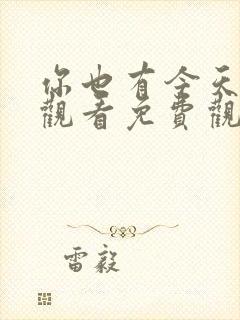 你也有今天
觀看免費觀
雷毅